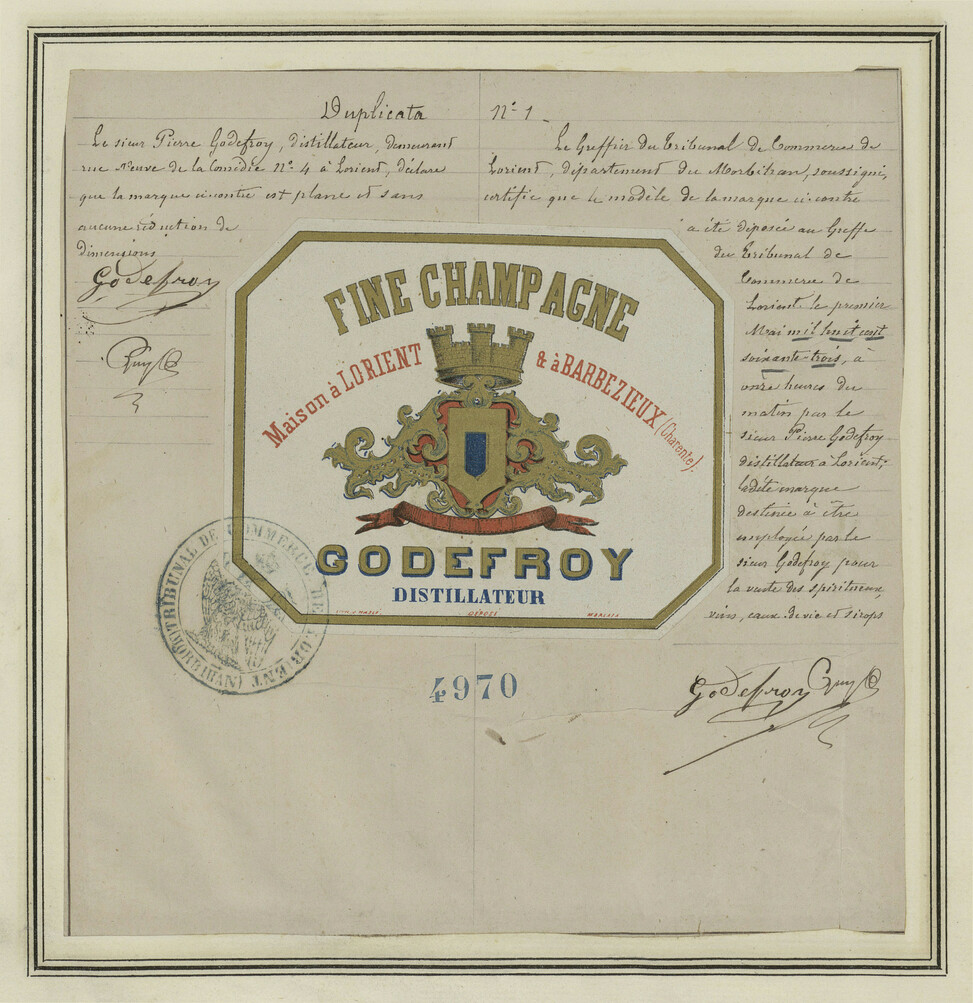 Duplicata
Le sieur Pierre Godefroy, distillateur, demeurant
rue Neuve de la Comédie N° 4 à Lorient, déclare
que la marque ci-contre est plane et sans
aucune réduction de
dimensions
Godefroy
N° 1
Le Greffier du Tribunal de Commerce de
Lorient, département du Morbihan, soussigné,
certifie que le modèle de la marque ci-contre
a été déposée au Greffe
du Tribunal de
Commerce de
Lorient le premier
Mai mil huit cent
soixante-trois, à
onze heures du
matin par le
sieur Pierre Godefroy
distillateur à Lorient;
ladite marque
destinée à être
employée par le
sieur Godefroy pour
la vente des spiritueux,
vins, eaux-de-vie et sirops
Godefroy
FINE CHAMPAGNE
Maison à LORIENT & à BARBEZIEUX (Charente).
GODEFROY
DISTILLATEUR
DÉPOSÉ
TRIBUNAL DE COMMERCE DE LORIENT (MORBIHAN)
4970